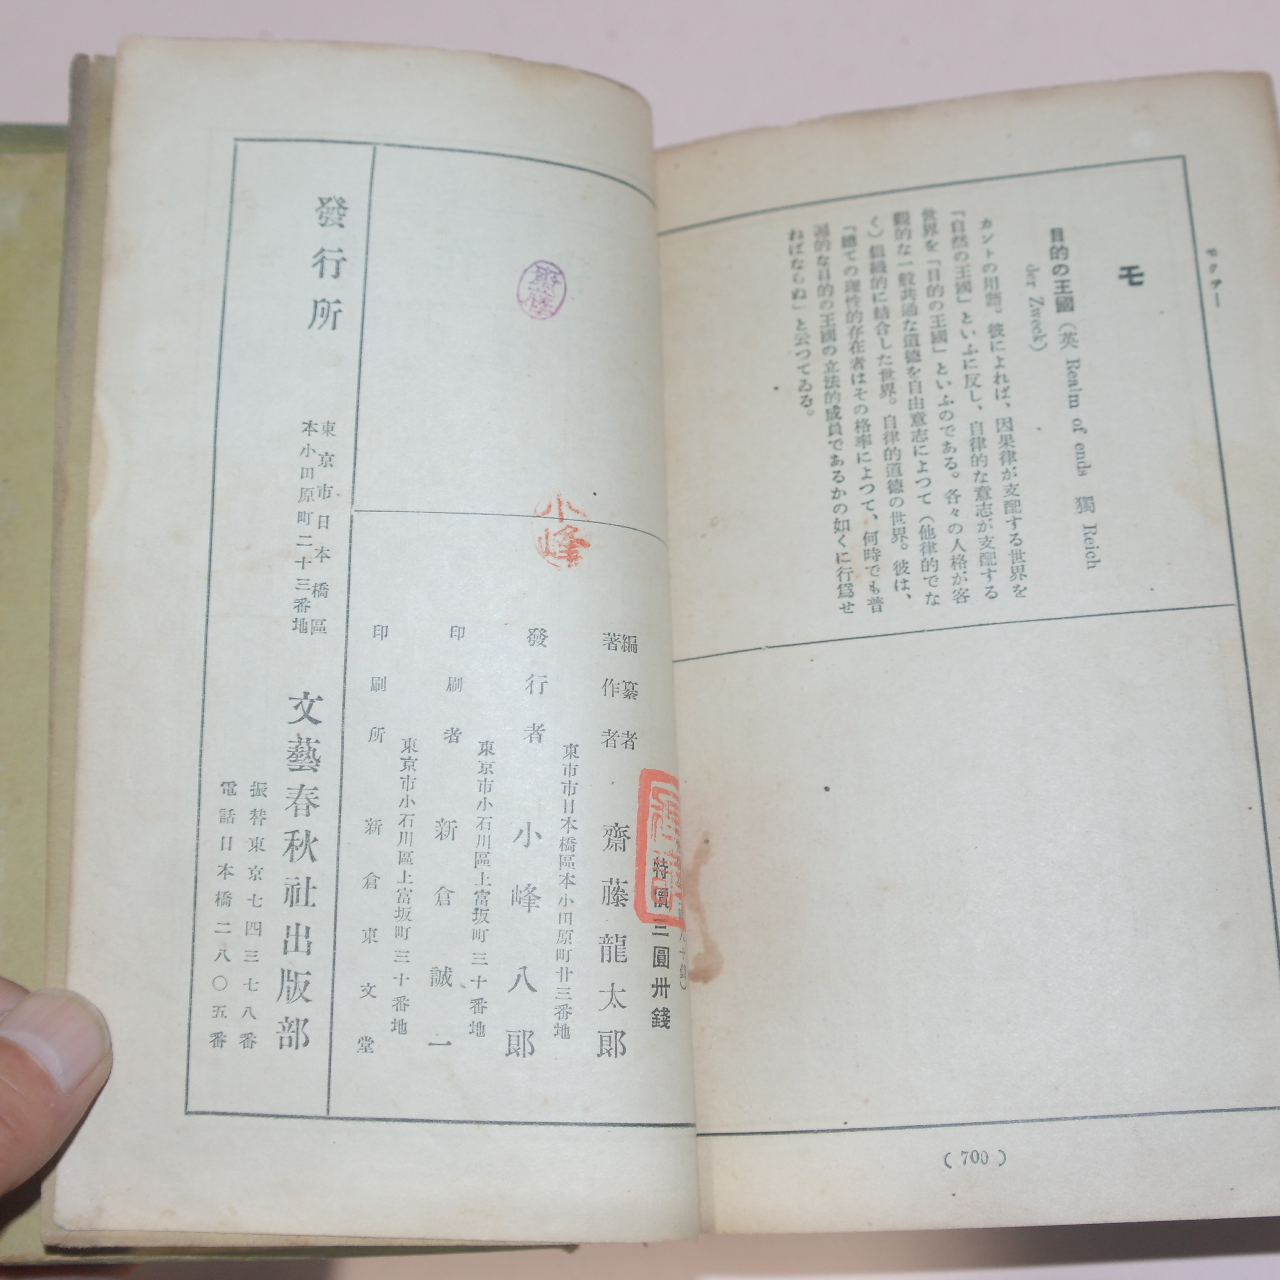 モクテー
モ
目的の王國（英 Realm of ends 獨 Reich
der Zweck）
カントの用語。彼によれば、因果律が支配する世界を
「自然の王國」といふに反し、自律的な意志が支配する
世界を「目的の王國」といふのである。各々の人格が客
觀的な一般共通な道德を自由意志によつて（他律的でな
く）組織的に結合した世界。自律的道德の世界。彼は、
「總ての理性的存在者はその格率によつて、何時でも普
遍的な目的の王國の立法的成員であるかの如くに行爲せ
ねばならぬ」と云つてゐる。
（700）
特價三圓卅錢
編纂者
著作者
齋藤龍太郎
東市市日本橋區本小田原町廿三番地
發行者 小峰八郎
東京市小石川區上富坂町三十番地
印刷者 新倉誠一
東京市小石川區上富坂町三十番地
印刷所 新倉東文堂
齋藤
小峰
發行所
東京市日本橋區
本小田原町二十三番地
文藝春秋社出版部
振替東京七四三七八番
電話日本橋二八〇五番